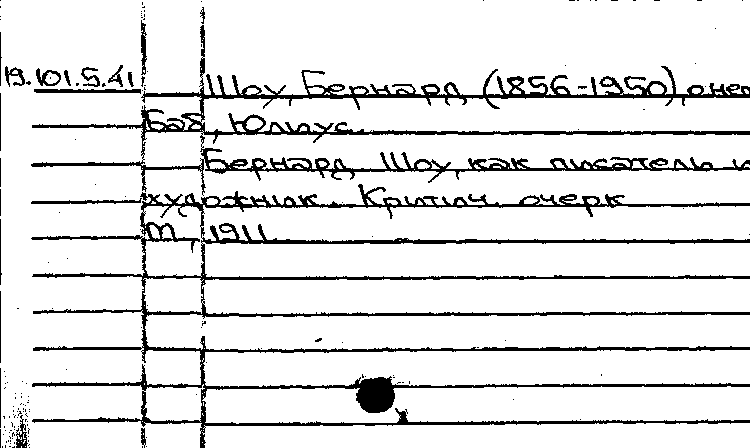 19.101.5.41
Шоу, Бернард (1856-1950), о нем
Баб, Юлиус.
Бернард Шоу, как писатель и
художник. Критич. очерк
М., 1911